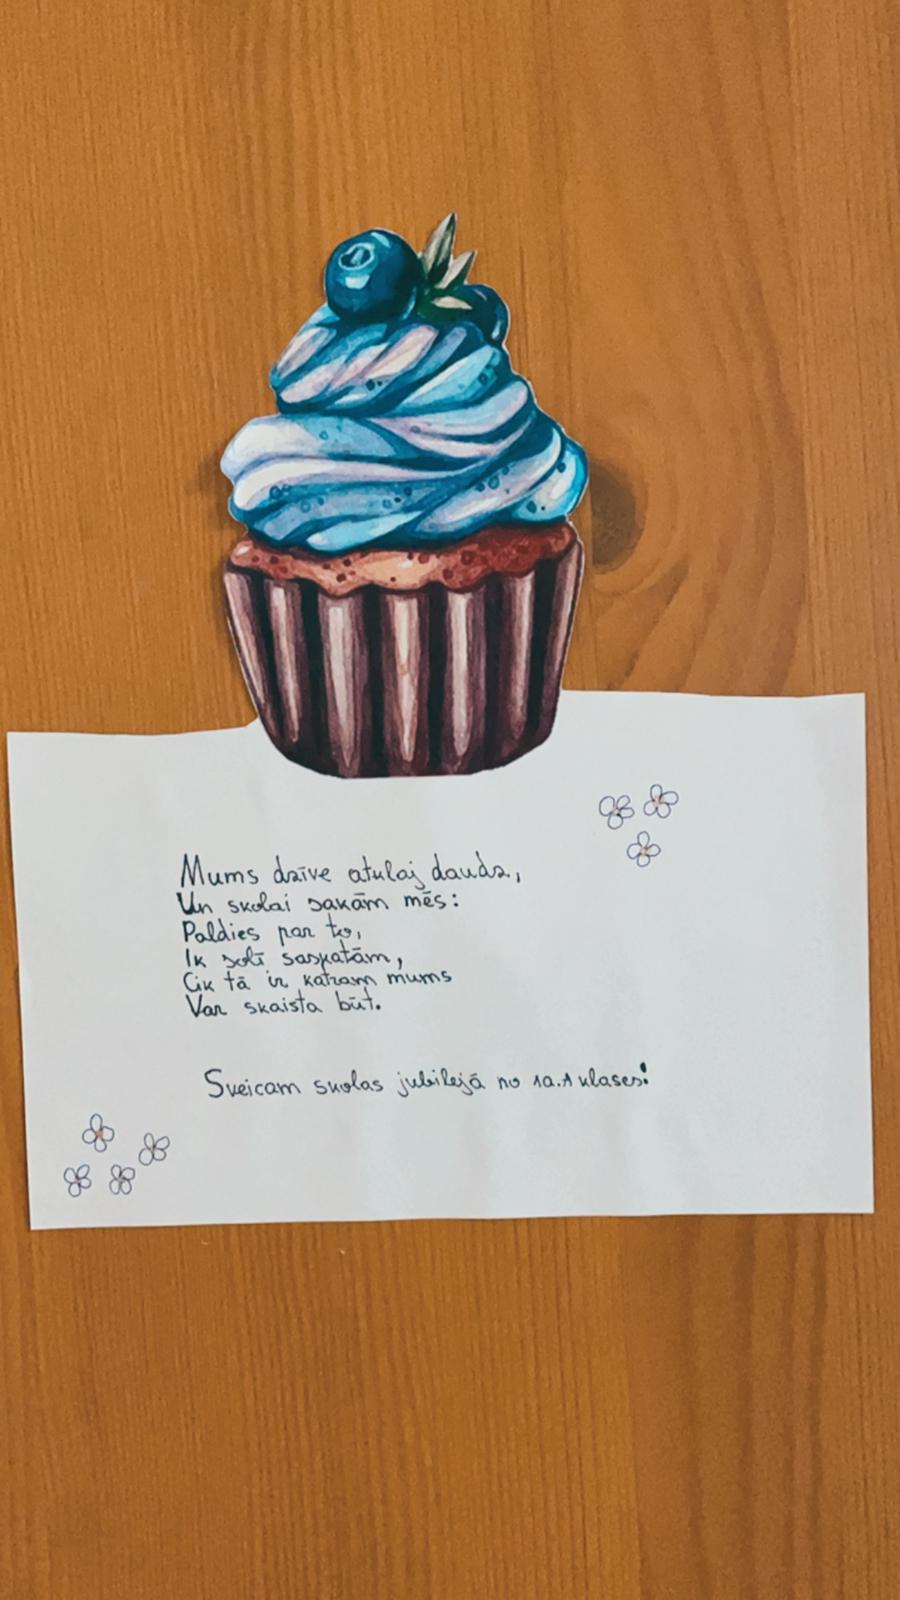 Mums dzīve atklāj daudz,
Un skolai sakām mēs:
Paldies par to,
Ik solī saskatām,
Cik tā ir katram mums
Var skaista būt.
Sveicam skolas jubilejā no 10.1 klases!